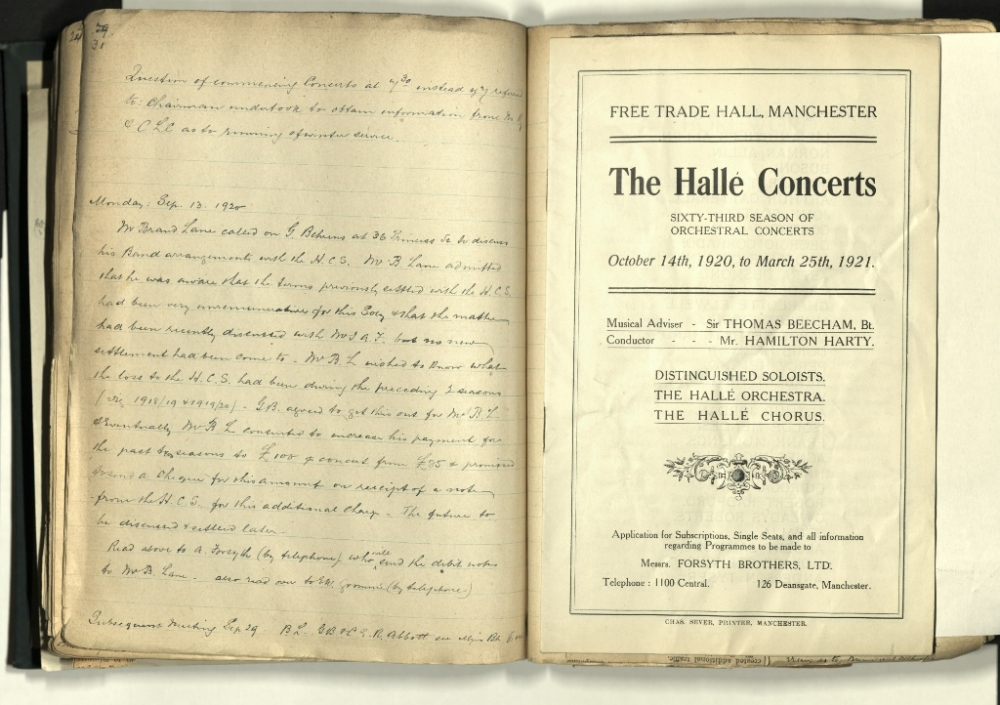 29
31
Question of commencing Concerts at 7.30 instead of 7 referred
to. Chairman undertook to obtain information from
& C L C as to running of winter service.
Monday: Sep. 13. 1920
Mr Brand Lane called on G Behrens at 36 Princess St to discuss
his Band arrangements with the H.C.S. Mr B. Lane admitted
that he was aware that the terms previously settled with the H.C.S.
had been very unremunerative for this Socy & that the matter
had been recently discussed with Mr J A F. but no new
settlement had been come to. Mr B L wished to know what
the loss to the H.C.S. had been during the preceding 2 seasons
(viz 1918/19 & 1919/20) - G.B. agreed to get this out for Mr B.L.
& Eventually Mr B L consented to increase his payment for
the past two seasons to £100 a concert from £85 & promised
to send a cheque for this amount on receipt of a note
from the H.C.S. for this additional charge. The future to
be discussed & settled later
Read above to A. Forsyth (by telephone) who will send the debit notes
to Mr B. Lane. also read over to (by telephone)
Subsequent Meeting Sep 29 B L GB & C S. R. Abbott see Mins Bk
FREE TRADE HALL, MANCHESTER
The Hallé Concerts
SIXTY-THIRD SEASON OF
ORCHESTRAL CONCERTS
October 14th, 1920, to March 25th, 1921.
Musical Adviser - Sir THOMAS BEECHAM, Bt.
Conductor - - - Mr. HAMILTON HARTY.
DISTINGUISHED SOLOISTS.
THE HALLÉ ORCHESTRA.
THE HALLÉ CHORUS.
Application for Subscriptions, Single Seats, and all information
regarding Programmes to be made to
Messrs. FORSYTH BROTHERS, LTD.
Telephone : 1100 Central. 126 Deansgate, Manchester.
CHAS. SEVER, PRINTER, MANCHESTER.
created additional traffic.